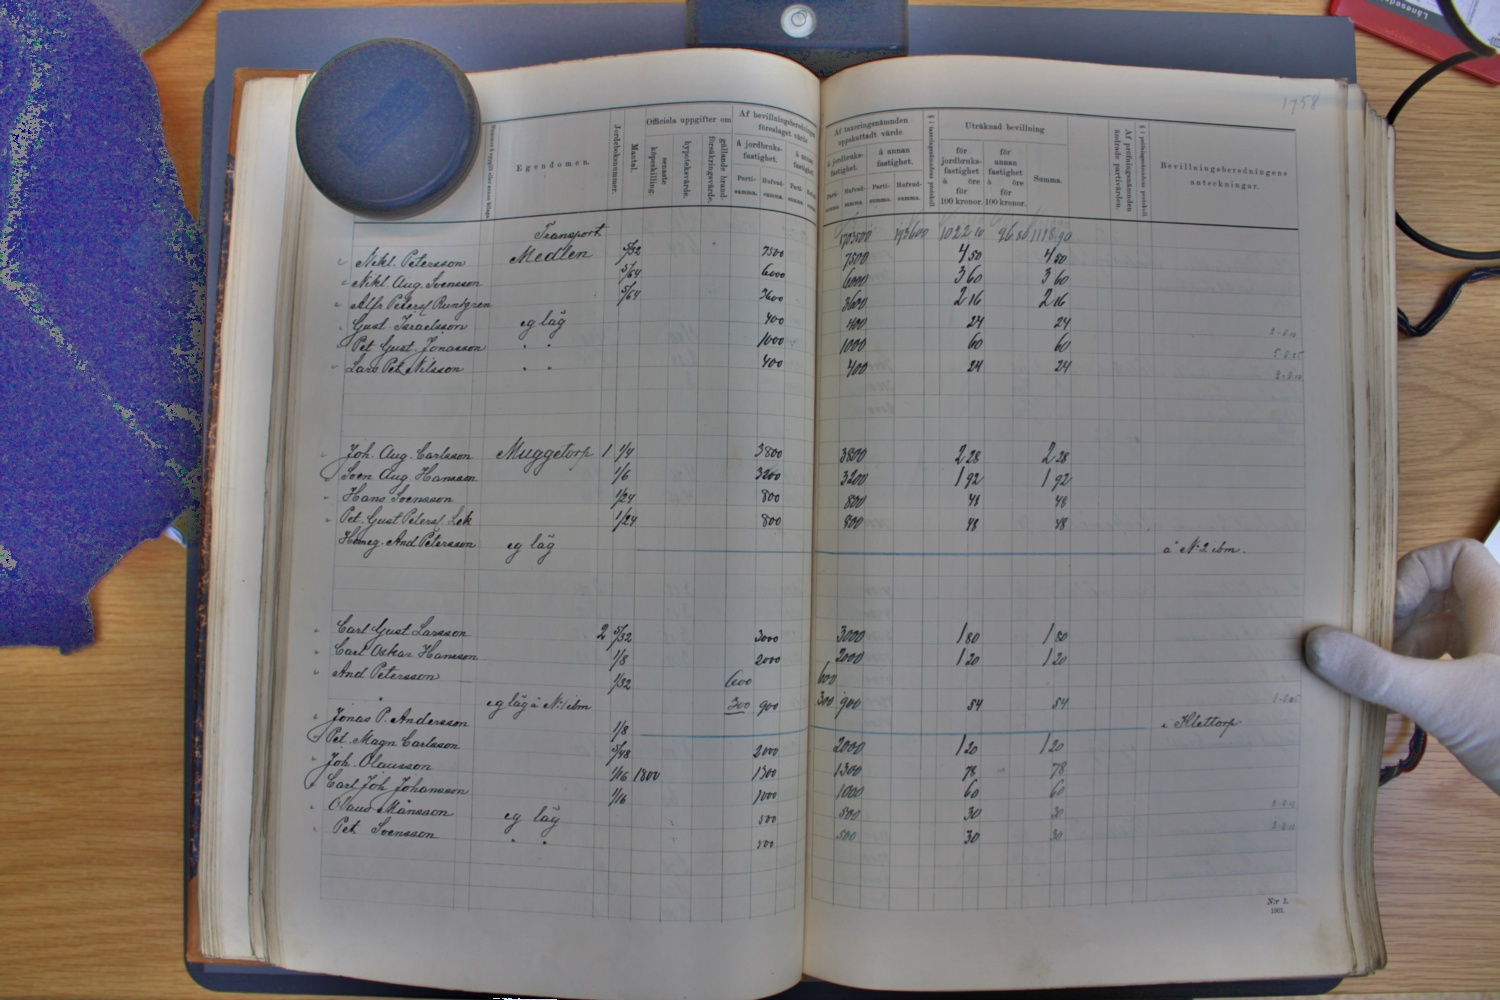 1758
Officiela uppgifter om
Egendomen.
Jordeboksnummer.
Mantal.
senaste köpeskilling.
hypoteksvärde.
gällande brandförsäkringsvärde.
Af bevillningsberedningen föreslaget värde
å jordbruksfastighet.
å annan
Partisumma.
Hufvudsumma.
Af taxeringsnämnden uppskattadt värde
å jordbruksfastighet.
å annan fastighet.
Partisumma.
Hufvudsumma.
Partisumma.
Hufvudsumma.
§ i taxeringsnämndens protokoll.
Uträknad bevillning
för jordbruksfastighet à öre för 100 kronor.
för annan fastighet à öre för 100 kronor.
Summa.
Af pröfningsnämnden ändrade partivärden.
§ i pröfningsnämndens protokoll.
Bevillningsberedningens anteckningar.
Transport 170300 193600 1022 10 96.80 1118.90
Nikl. Petersson Medlen 5/32 7500 7500 4 50 4 50
Nikl. Aug. Svensson 5/64 6000 6000 3 60 3 60
Alfr Petersf Rundgren 5/64 3600 3600 2 16 2 16
Gust. Israelsson eg läg 400 400 24 24
Pet Gust. Jonasson " " 1000 1000 60 60
Lars Pet. Nilsson " " 400 400 24 24
Joh. Aug. Carlsson Muggetorp 1 1/4 3800 3800 2 28 2 28
Sven Aug. Hansson 1/6 3200 3200 1 92 1 92
Hans Svensson 1/24 800 800 48 48
Pet. Gust Petersf. Lek 1/24 800 800 48 48
And Petersson eg läg å N:2 ibm.
Carl Gust Larsson 2 5/32 3000 3000 1 80 1 80
Carl Oskar Hansson 1/8 2000 2000 1 20 1 20
And Petersson 1/32 600 600
" eg läg å N:1 ibm 300 900 300 900 54 54
Jonas P. Andersson 1/8 i Klettorp
Pet. Magn Carlsson 5/48 2000 2000 1 20 1 20
Joh. Olausson 1/16 1800 1300 1300 78 78
Carl Joh. Johansson 1/16 1000 1000 60 60
Olaus Månsson eg läg 500 500 30 30
Pet. Svensson " " 500 500 30 30
N:r 1.
1901.